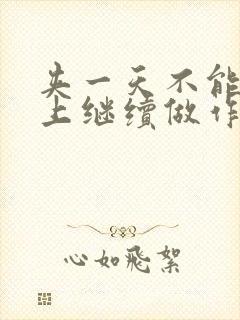 央一天不能
上继续做作
心如飛絮